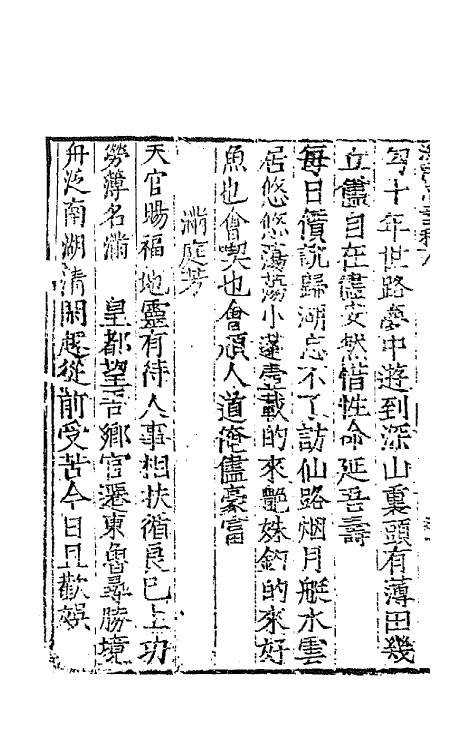 勾十年世路夢中遊到深山裏頭有薄田幾
丘儘自在儘安然惜性命延吾壽
每日價說歸湖忘不了訪仙路烟月艇水雲
居悠悠蕩蕩小蓬壺載的來艷姝釣的來好
魚也會喫也會沽人道俺儘豪富
滿庭芳
天官賜福地靈有待人事相扶循良已上功
勞簿名滿　皇都望吾鄉官遷東魯尋勝境
舟泛南湖清閑趣從前受苦今日且歡娛